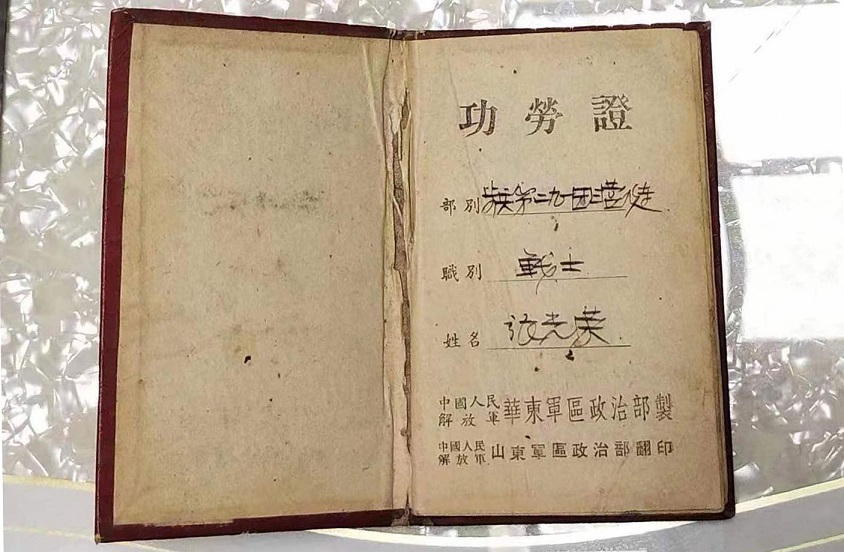 功勞證
部別 第二九团三营
職別 戰士
姓名 光荣
中國人民解放軍 華東軍區政治部製
中國人民解放軍 山東軍區政治部翻印